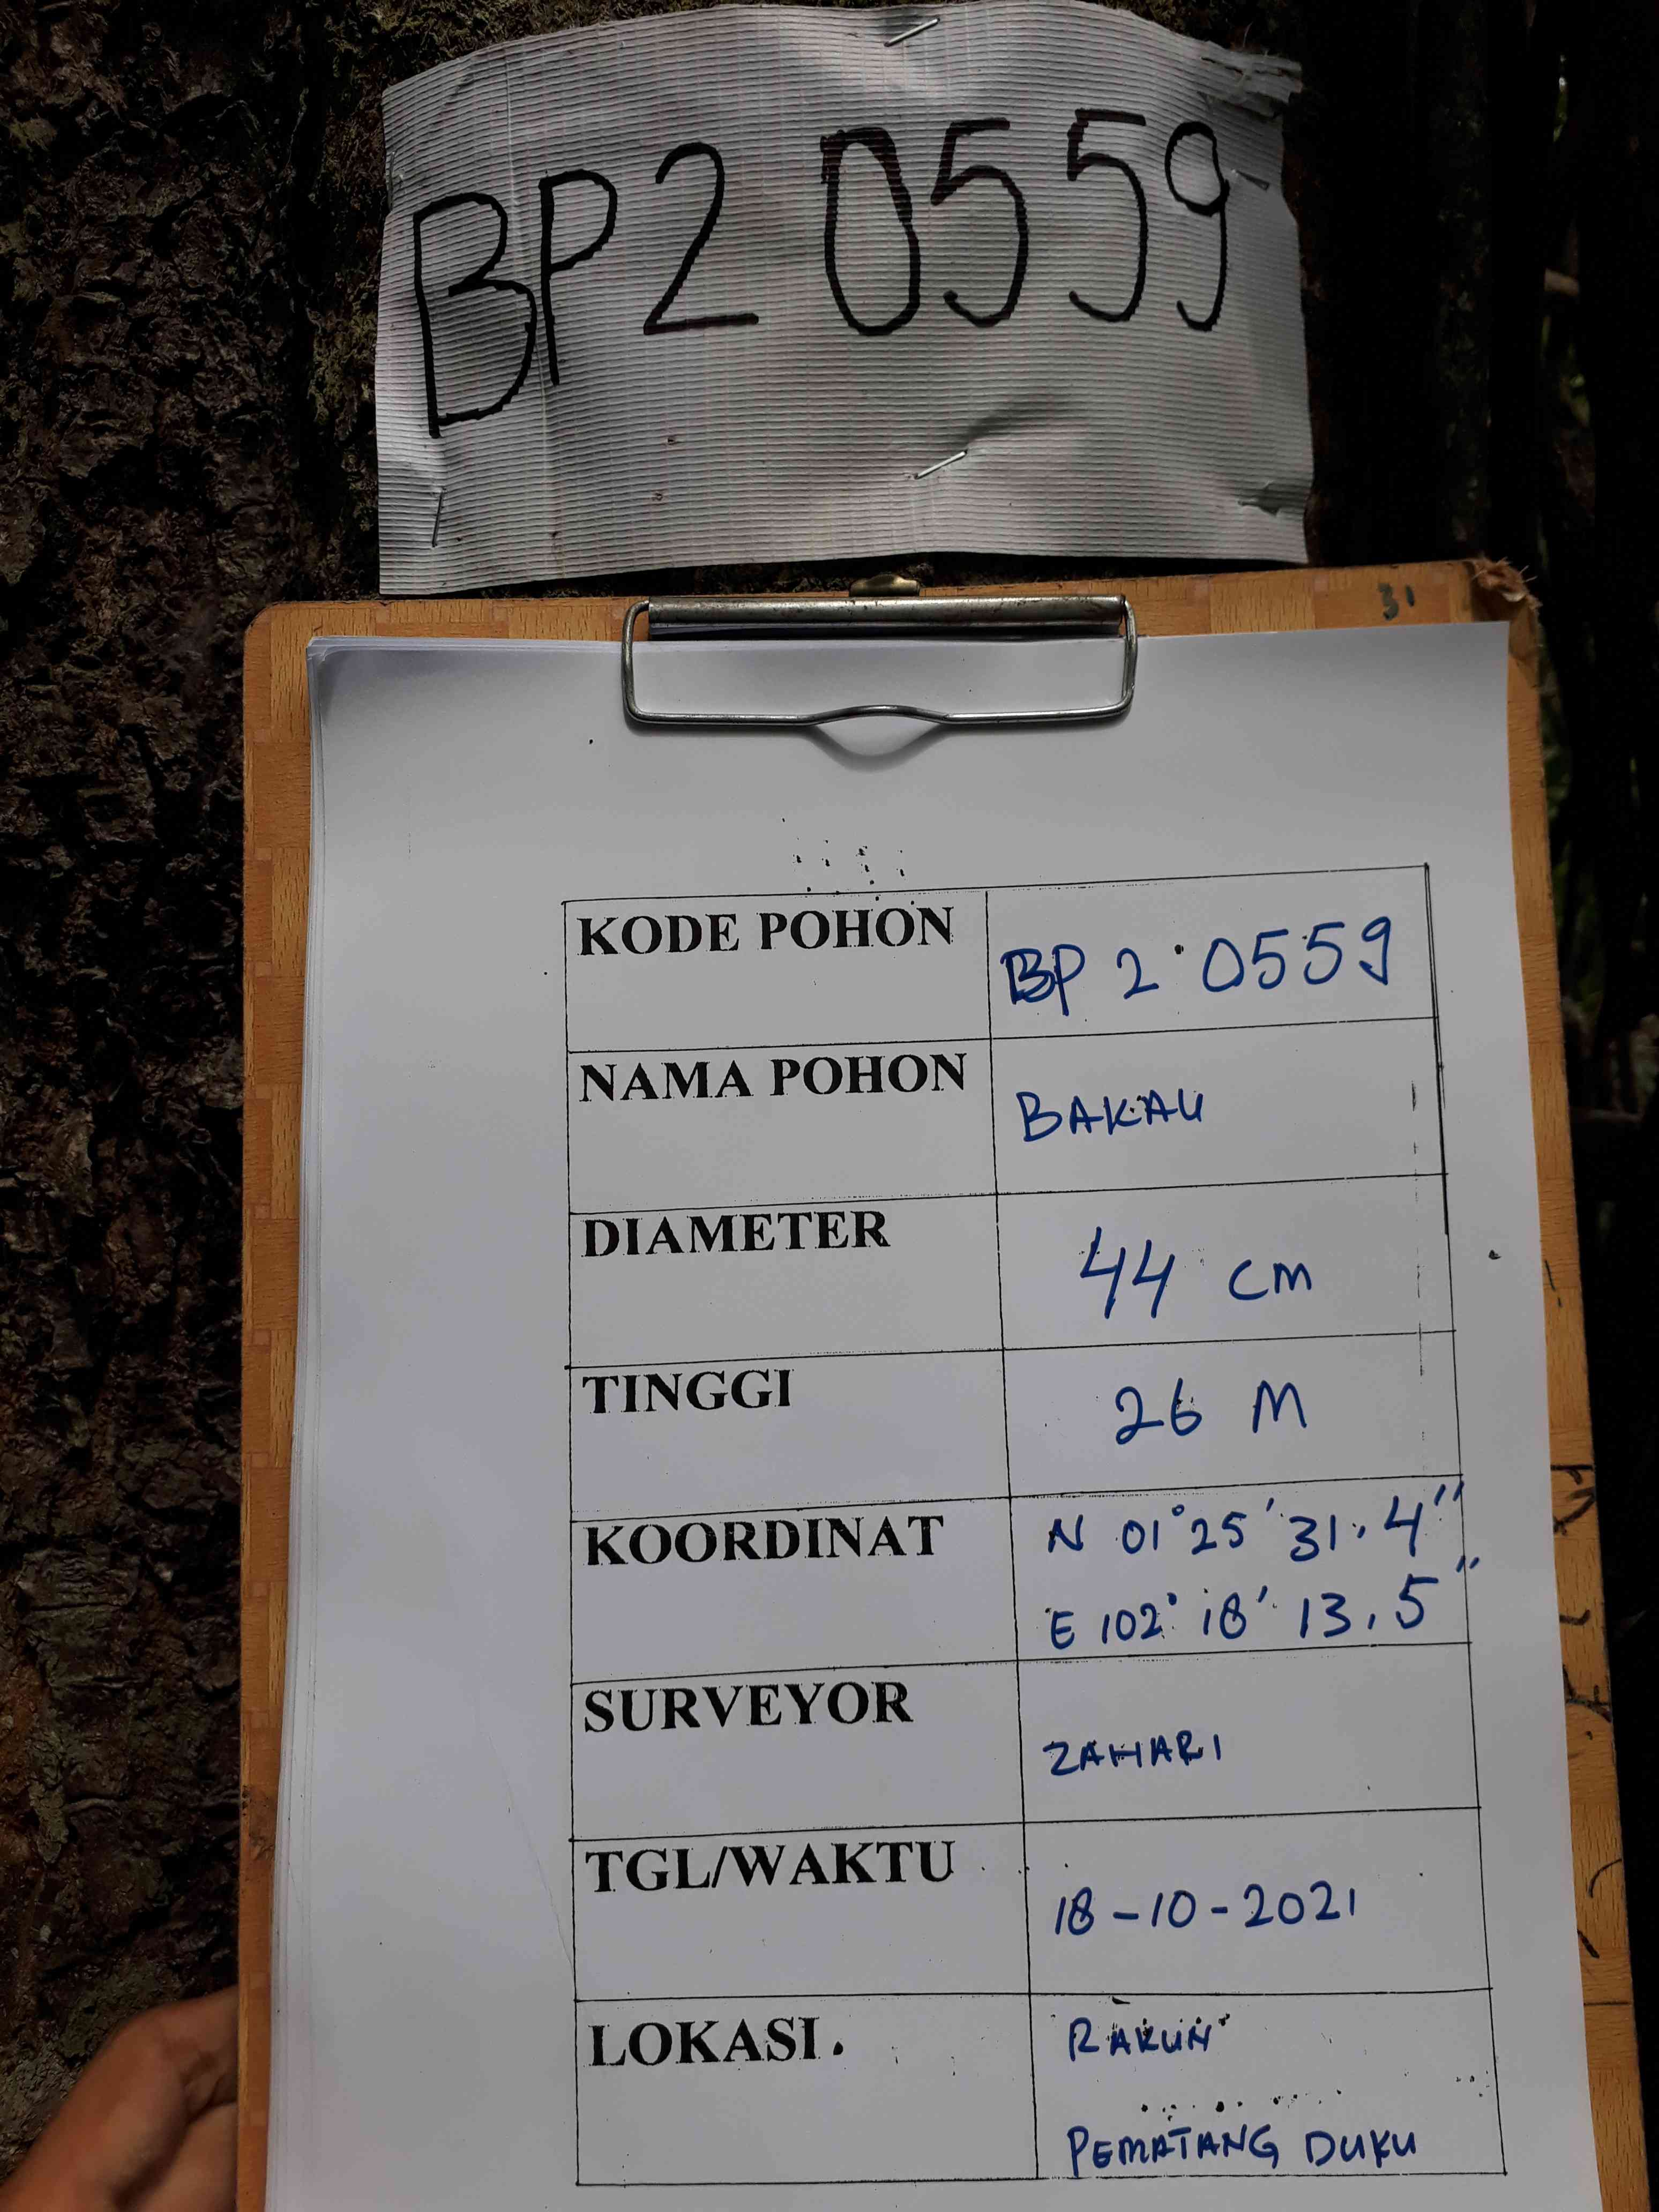 BP2 0559
31
KODE POHON
BP 2 0559
NAMA POHON
BAKAU
DIAMETER
44 cm
TINGGI
26 M
KOORDINAT
N 01° 25' 31.4"
E 102° 18' 13.5"
SURVEYOR
ZAHARI
TGL/WAKTU
18-10-2021
LOKASI.
RAKUN
PEMATANG DUKU